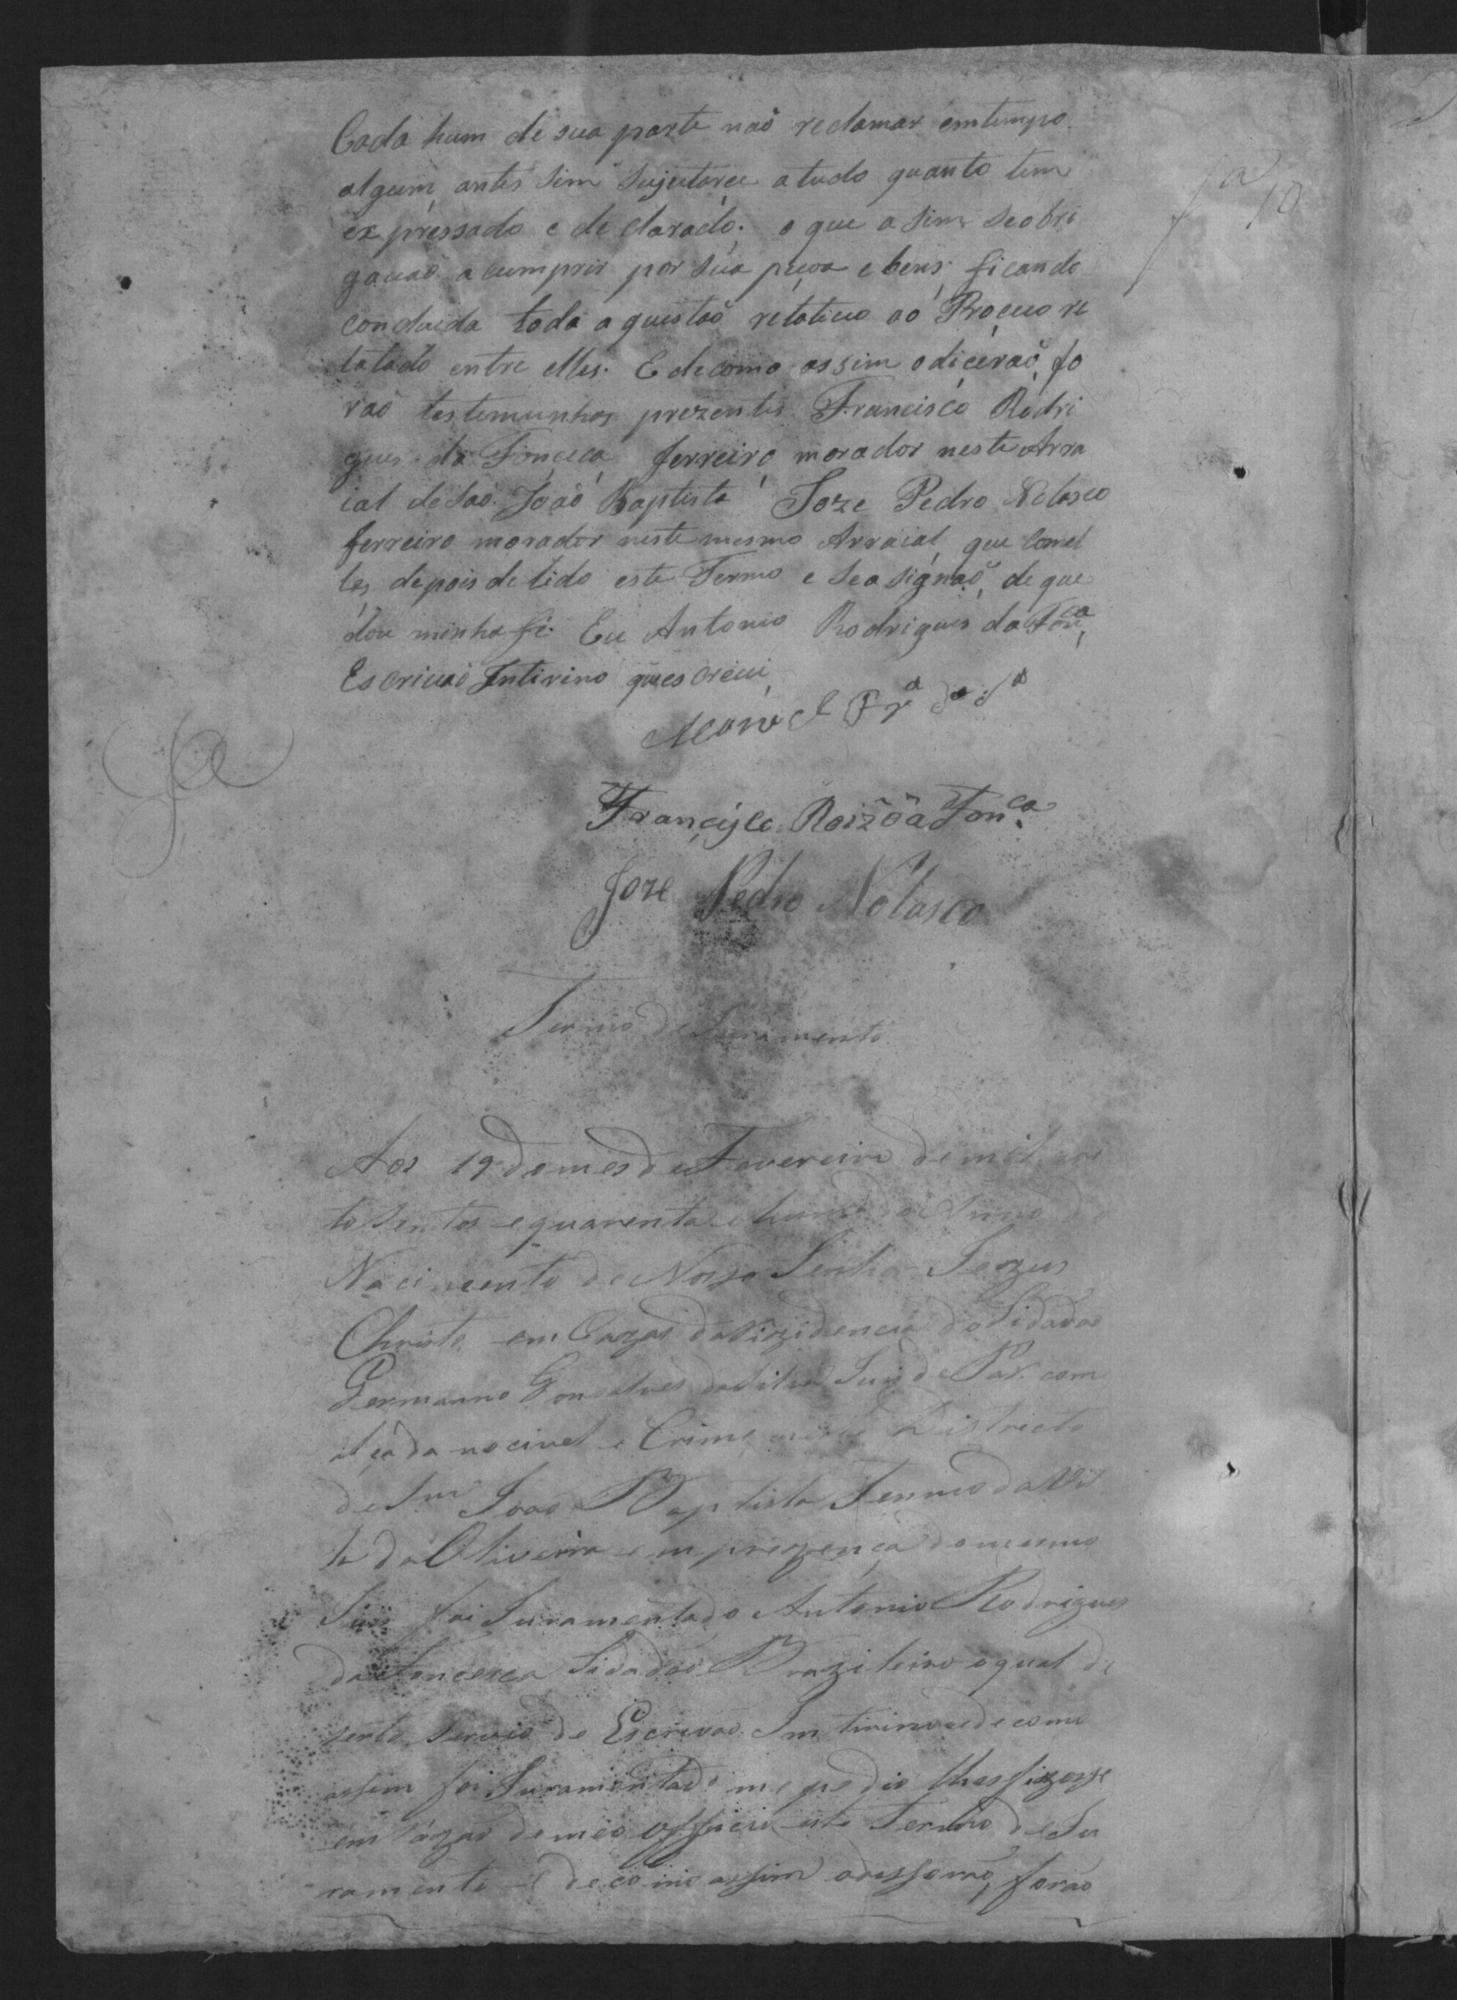 Cada hum de sua parte naõ reclamar emtempo
algum, antes sim sujeitarce atudo quanto tem
expressado e declarado; o que asim seobri
gavaõ acumprir por sua pecoa ebens; ficando
concluida toda aquestaõ relativo ao Proceco re
latado entre elles. E decomo assim odiceraõ, fo
raõ testemunhas prezentes Francisco Rodri
gues da Fonceca ferreiro morador neste Arra
ial de Saõ Joaõ Baptista Joze Pedro Nolasco
ferreiro morador neste mesmo Arraial, que Comel
les depois de lido este Termo e seasignaõ, de que
dou minha fé. Eu Antonio Rodrigues da Fon.ca
Escrivaõ Intirino q̃ escrevi
Manoel Pr.a da S.a
Francisco Roiz̃ da Fon.ca
Joze Pedro Nolasco
Termo de Juramento
Aos 19 do mes de Fevereiro de mil oui
to sentos e quarenta e hum do
Nacimento de Noso Senhor Jezus
Christo em Cazas da Rizidencia do Sidadaõ
Germanno Gonsalves da Silva Juis de Pas com
alçada no civel e Crime neste Districto
de Sm Joaõ Baptista Termo da Vil
la da Oliveira em prezença do mesmo
Juis foi Juramentado Antonio Rodrigues
da Fonceca Sidadaõ Brazileiro oqual
de Escrivaõ Intirino e de como
assim foi Juramentado me pedio lhes fizesse
em razaõ de meo officio este Termo de Ju
ramento e de como assim odisseraõ, foraõ
fa 10